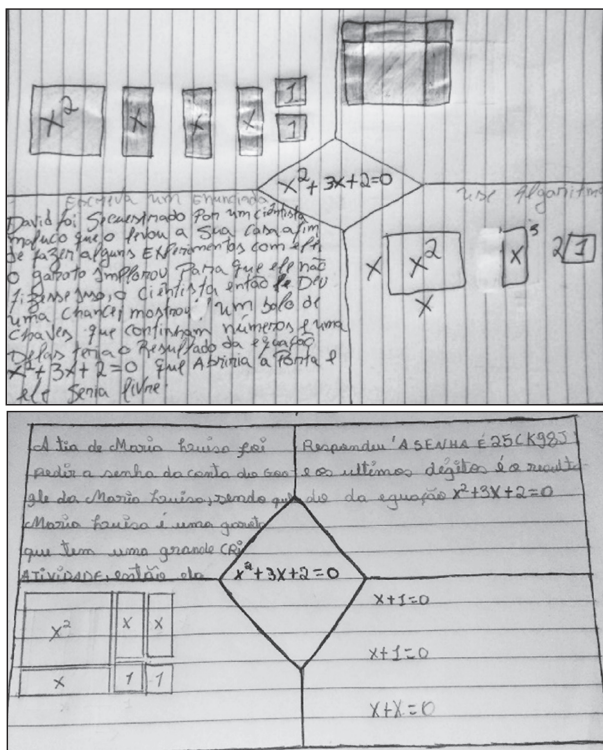 x² x x x 1
1
x² + 3x + 2 = 0
Escreva um Enunciado
David foi Sequestrado Por um cientista
maluco que o levou a Sua casa afim
de fazer alguns Experimentos com ele
o garoto Implorou Para que ele não
fizesse isso, o Cientista então le Deu
uma chance, mostrou um bolo de
chaves que continham números e uma
Delas teria o Resultado da equação
x² + 3x + 2 = 0 que Abriria a Porta e
ele Seria livre.
use Algoritmo
x x² x 3 2 1
x
A tia de Maria Luisa foi
pedir a senha da conta do Goo-
gle da Maria Luisa, sendo que
Maria Luisa é uma garota
que tem uma grande CRI
ATIVIDADE, então ela
Respondeu 'A SENHA É 25CK98J
e os ultimos dégitos é o resulta-
do da equação x²+3x+2=0
x²+3x+2=0
x² x x
x 1 1
x+1=0
x+1=0
x+x=0